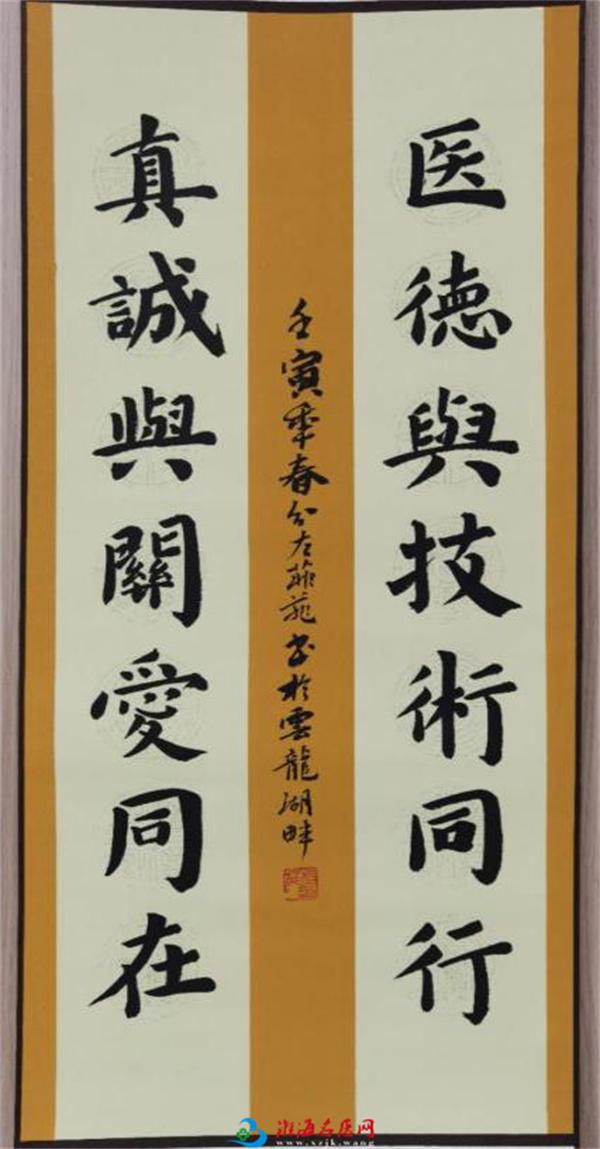 医德與技術同行
真誠與關愛同在
壬寅年春分左菲龍书於雲龍湖畔
淮海名医网
www.xzjk.wang